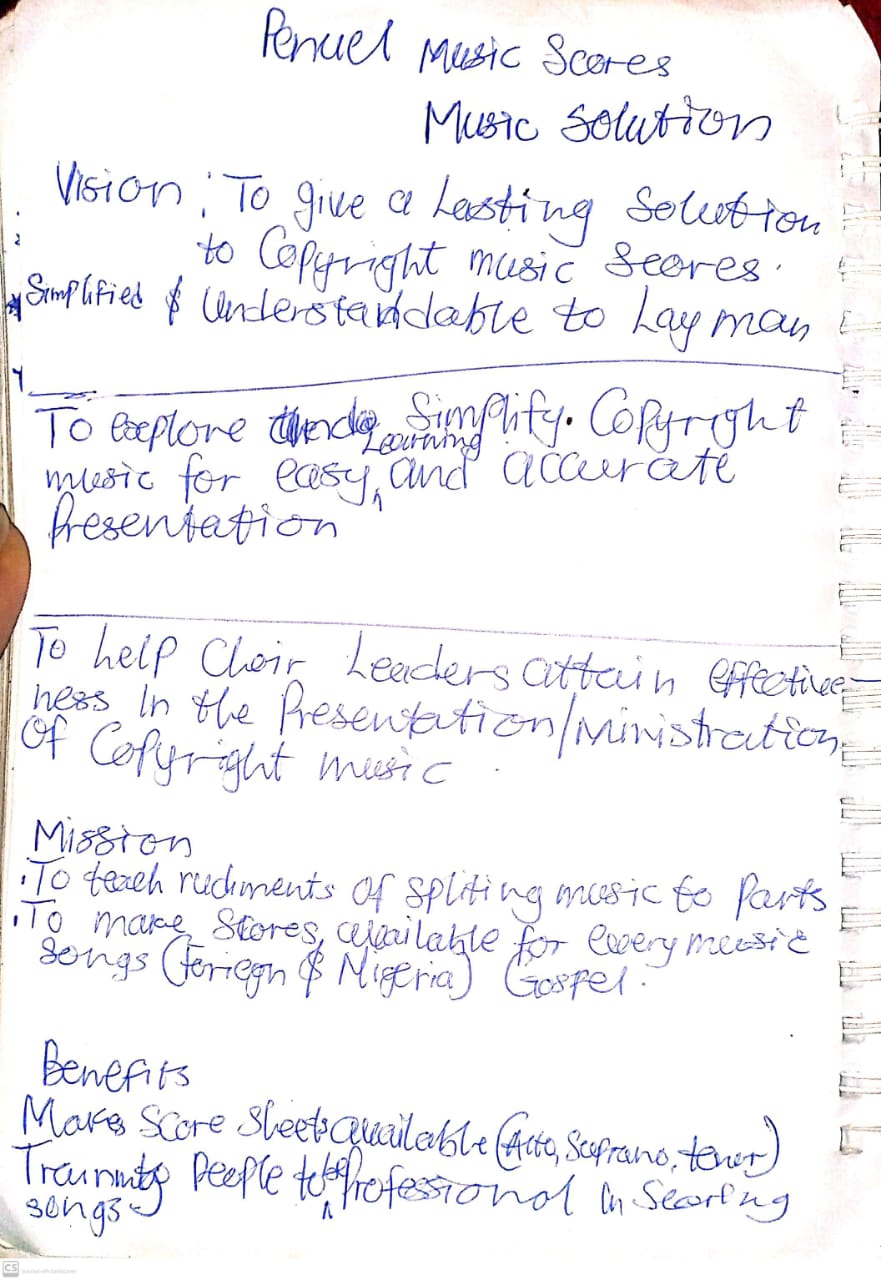 Penuel Music Scores
Music Solution
Vision : To give a Lasting Solution
to Copyright music Scores.
Simplified & Understandable to Lay man
To explore Simplify. Copyright
music for easy Learning and accurate
Presentation
To help Choir Leaders attain effective-
ness In the Presentation/Ministration
Of Copyright music
Mission
. To teach rudiments of spliting music to Parts
. To make Scores available for every music
songs (Foriegn & Nigeria) Gospel.
Benefits
Makes Score Sheets available (Alto, Soprano, tenor)
Training People to be Professional In Scoring
songs
CS